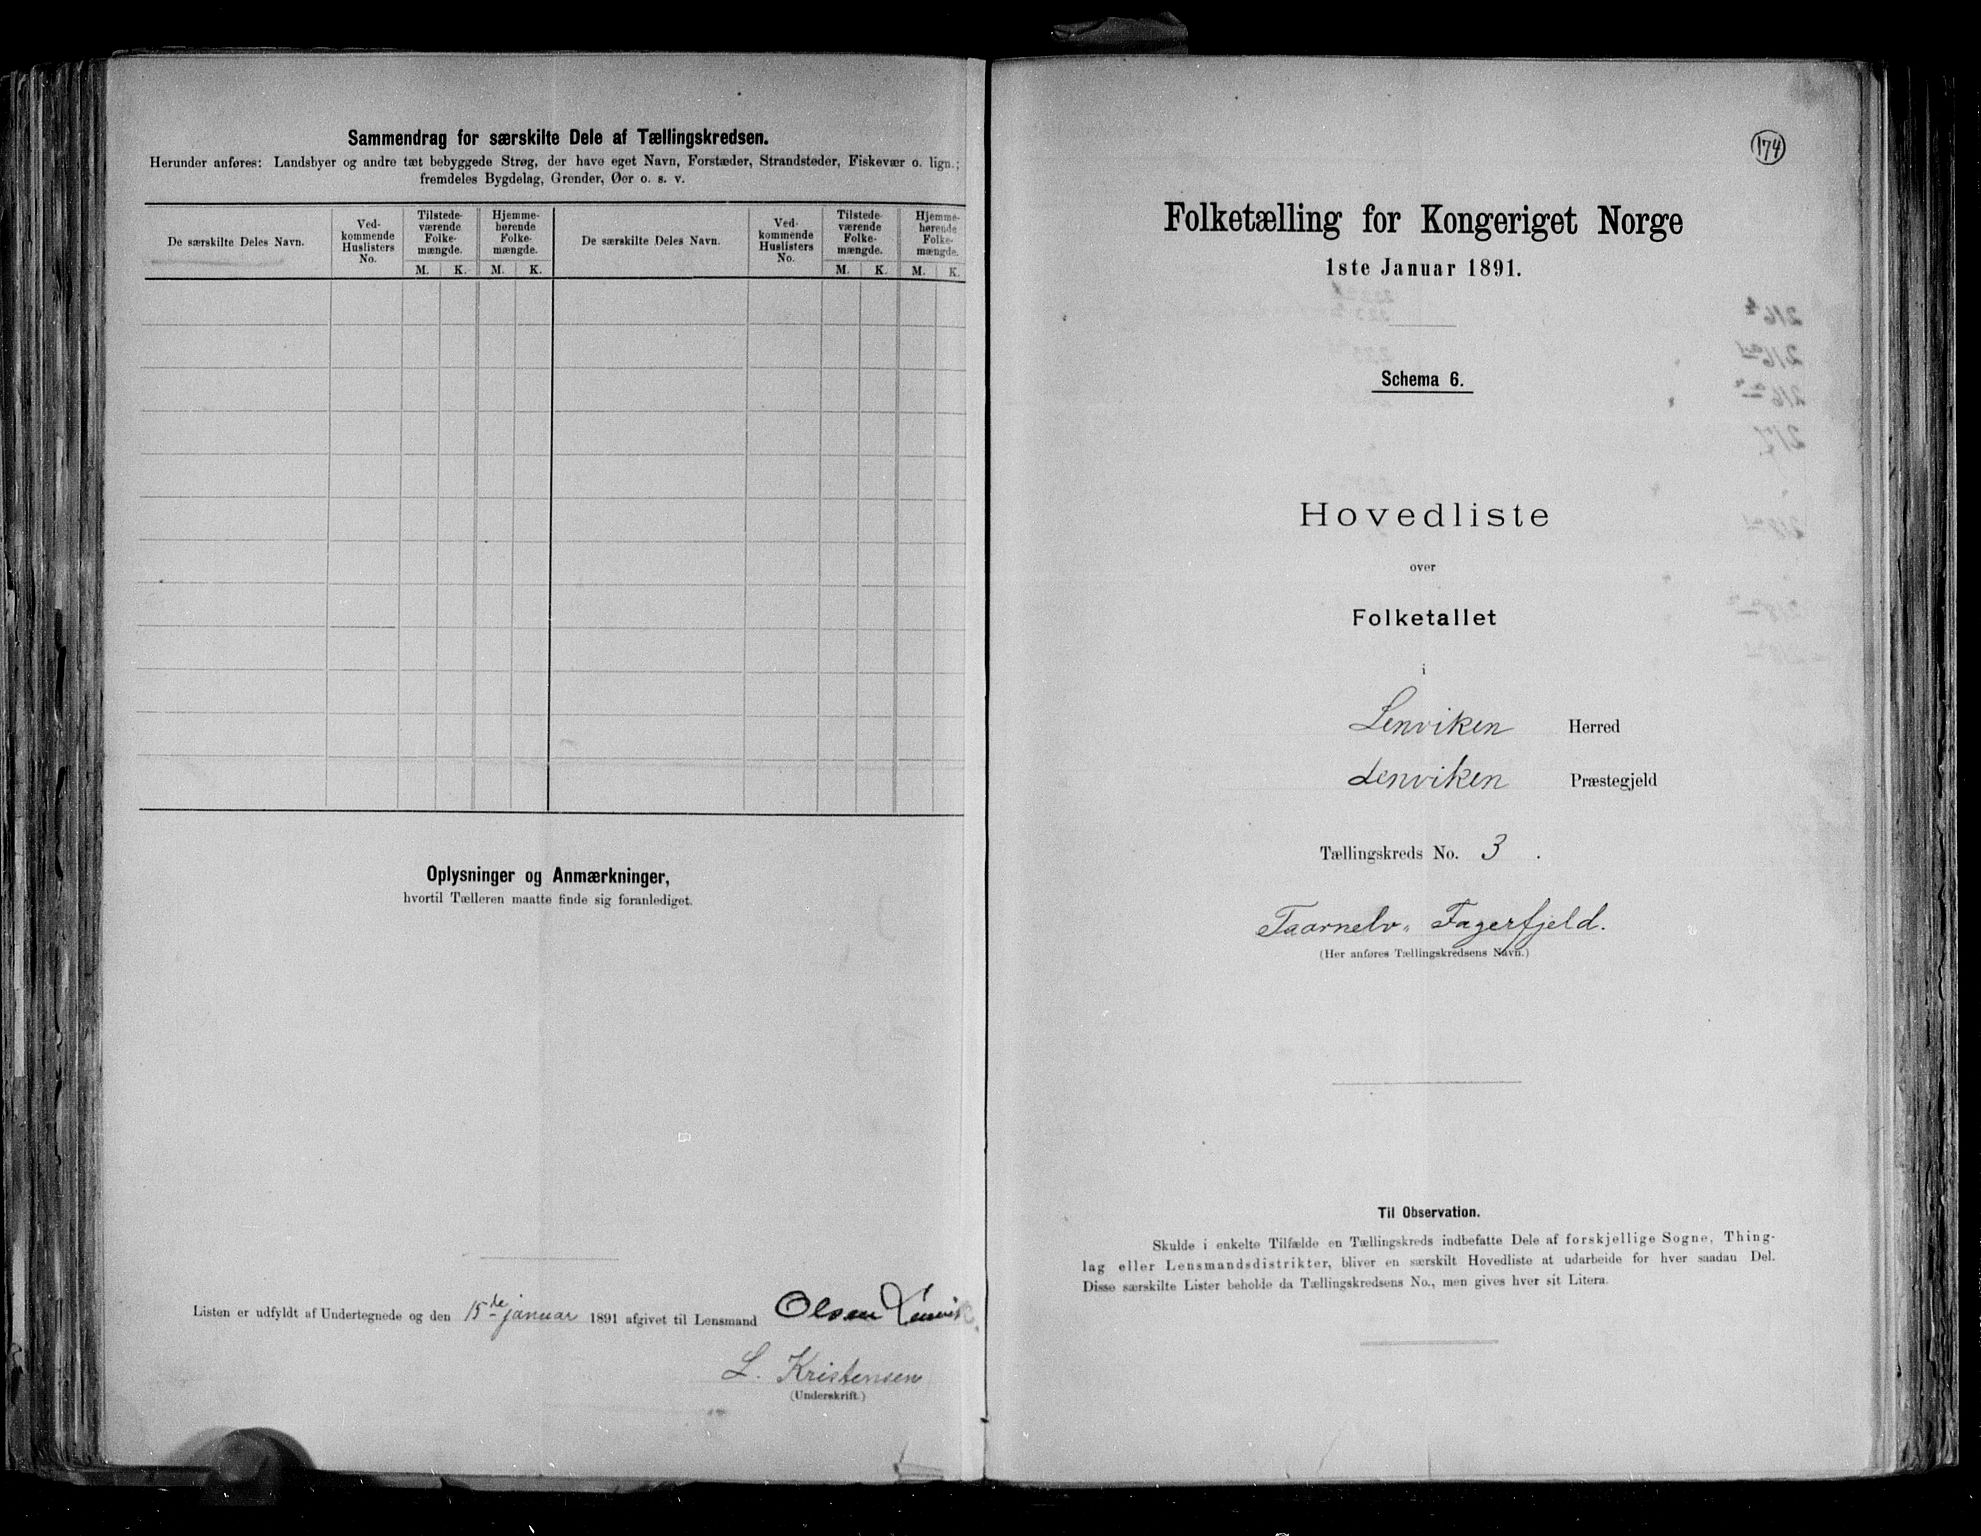 Sammendrag for særskilte Dele af Tællingskredsen.
Herunder anføres: Landsbyer og andre tæt bebyggede Strøg, der have eget Navn, Forstæder, Strandsteder, Fiskevær o. lign.;
fremdeles Bygdelag, Grender, Øer o. s. v.
De særskilte Deles Navn.
Ved-
kommende
Huslisters
No.
Tilstede-
værende
Folke-
mængde.
M. K.
Hjemme-
hørende
Folke-
mængde.
M. K.
De særskilte Deles Navn.
Ved-
kommende
Huslisters
No.
Tilstede-
værende
Folke-
mængde.
M. K.
Hjemme-
hørende
Folke-
mængde.
M. K.
Oplysninger og Anmærkninger,
hvortil Tælleren maatte finde sig foranlediget.
Listen er udfyldt af Undertegnede og den 15de januar 1891 afgivet til Lensmand Olsen
L. Kristensen
(Underskrift.)
174
Folketælling for Kongeriget Norge
1ste Januar 1891.
Schema 6.
Hovedliste
over
Folketallet
i
Lenviken Herred
Lenviken Præstegjeld
Tællingskreds No. 3.
Taarnelv Fagerfjeld.
(Her anføres Tællingskredsens Navn.)
Til Observation.
Skulde i enkelte Tilfælde en Tællingskreds indbefatte Dele af forskjellige Sogne, Thing-
lag eller Lensmandsdistrikter, bliver en særskilt Hovedliste at udarbeide for hver saadan Del.
Disse særskilte Lister beholde da Tællingskredsens No., men gives hver sit Litera.